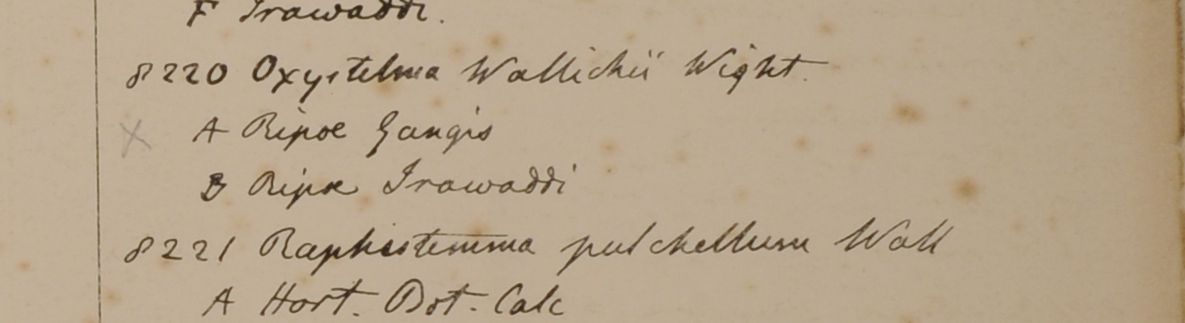 F Irawaddi.
8220 Oxystelma Wallichii Wight.
X A Ripoe Gangis
B Ripæ Irawaddi
8221 Raphistemma pulchellum Wall
A Hort. Bot. Calc